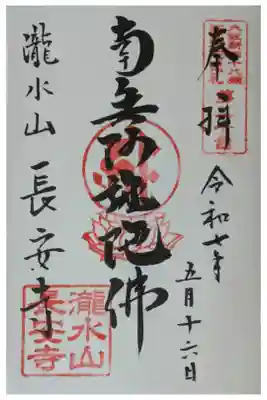 奉拝
令和七年
五月十六日
南無阿弥陀佛
瀧水山 長安寺
瀧水山
長安寺